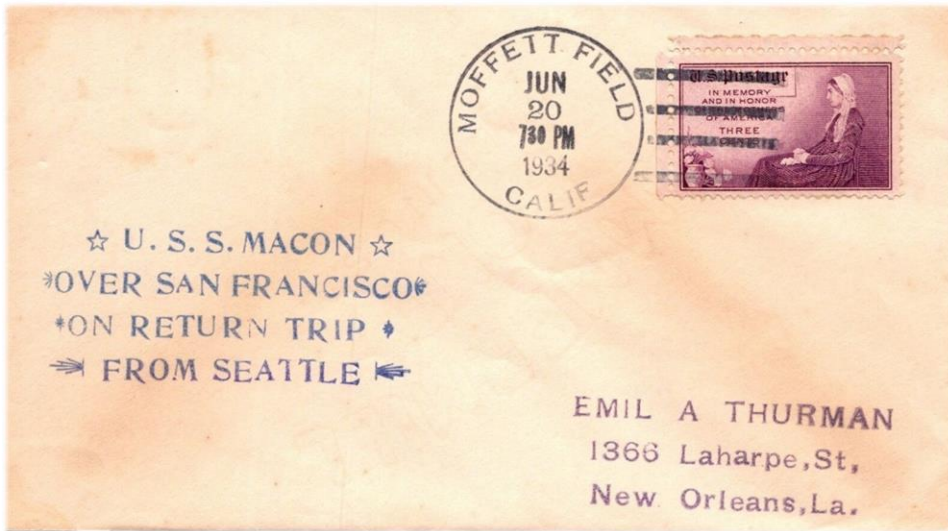 MOFFETT FIELD
JUN
20
730 PM
1934
CALIF
U.S. Postage
IN MEMORY
AND IN HONOR
OF AMERICA
THREE
☆ U. S. S. MACON ☆
OVER SAN FRANCISCO
ON RETURN TRIP
FROM SEATTLE
EMIL A THURMAN
1366 Laharpe,St,
New Orleans,La.